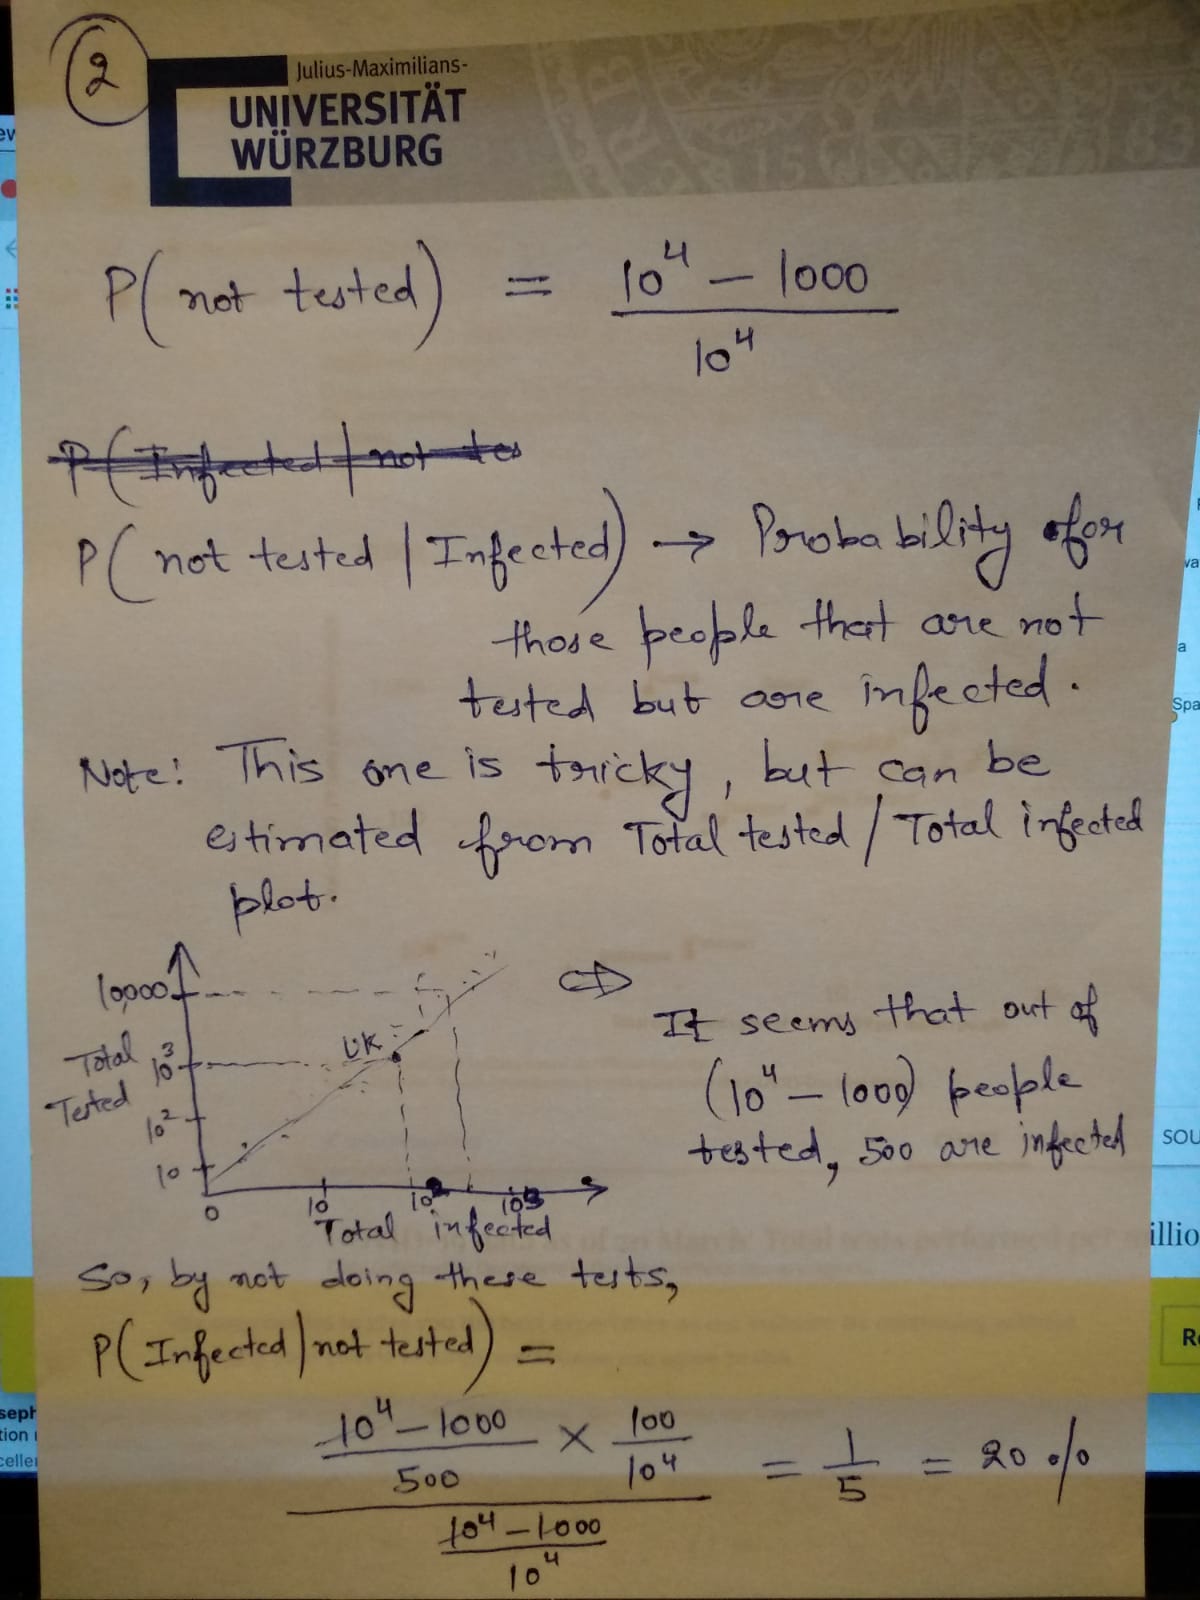 2
Julius-Maximilians-
UNIVERSITÄT
WÜRZBURG
P(not tested) = (10⁴ - 1000) / 10⁴
P(Infected | not tes
P(not tested | Infected) → Probability for
those people that are not
tested but are infected.
Note: This one is tricky, but can be
estimated from Total tested / Total infected
plot.
10,000
Total
Tested
10³
10²
10
UK
0
10
10²
10³
Total infected
⇒ It seems that out of
(10⁴ - 1000) people
tested, 500 are infected
So, by not doing these tests,
P(Infected | not tested) =
((10⁴ - 1000) / 500 × 100 / 10⁴) / ((10⁴ - 1000) / 10⁴) = 1/5 = 20 %
Spa
SOU
illio
seph
tion
celle